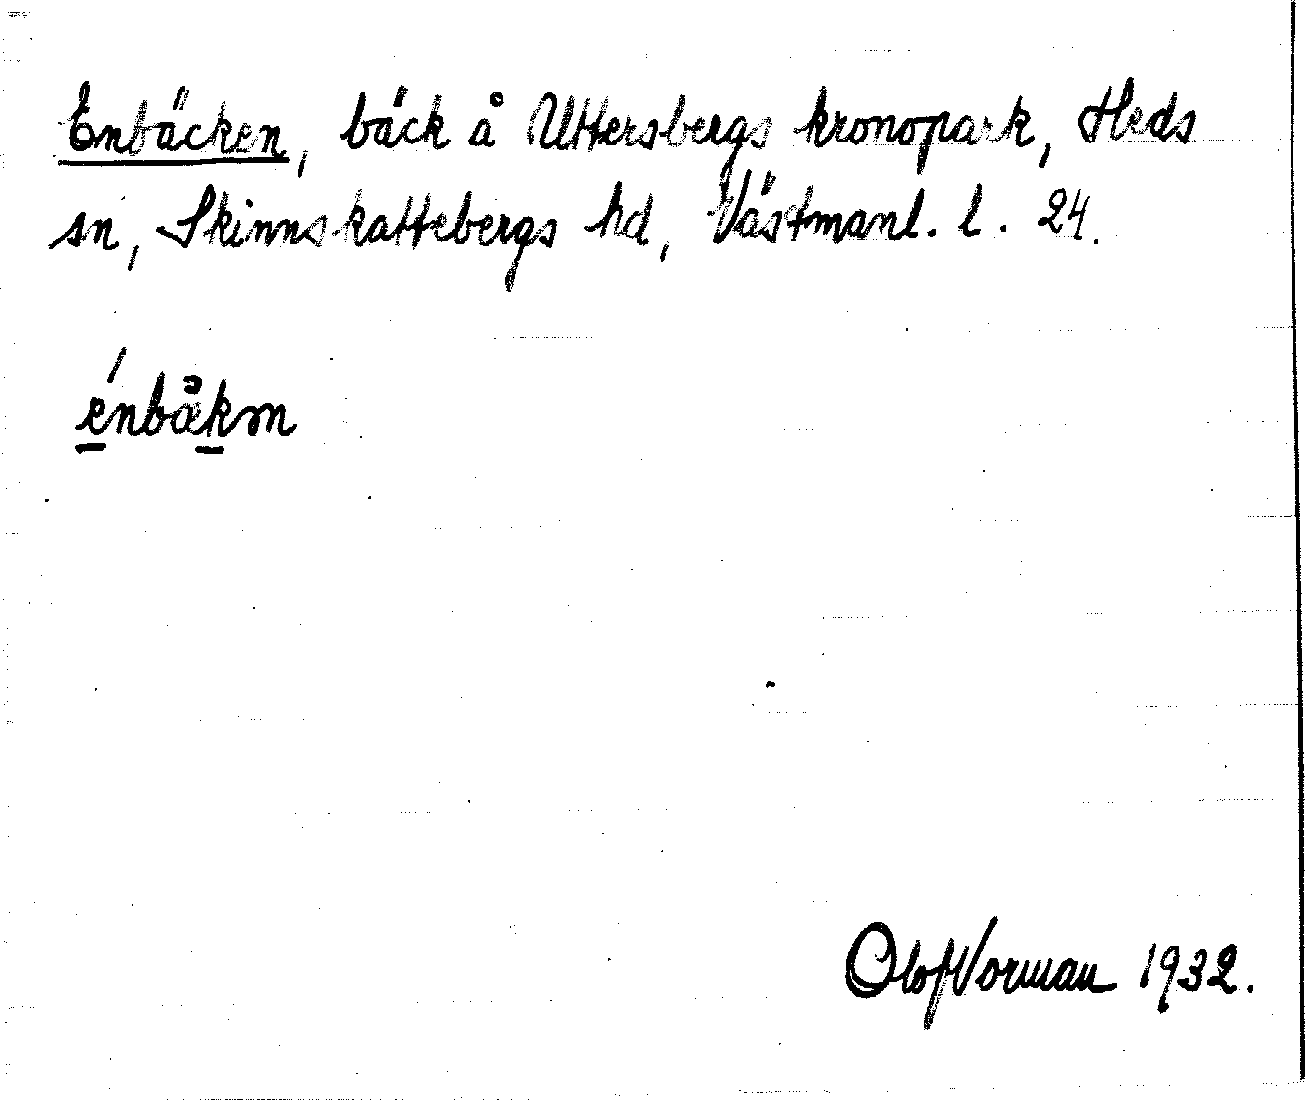 Enbäcken, bäck å Uttersbergs kronopark, Heds
sn, Skinnskattebergs hd, Västmanl. l. 24.
énbækm
Olof Norman 1932.